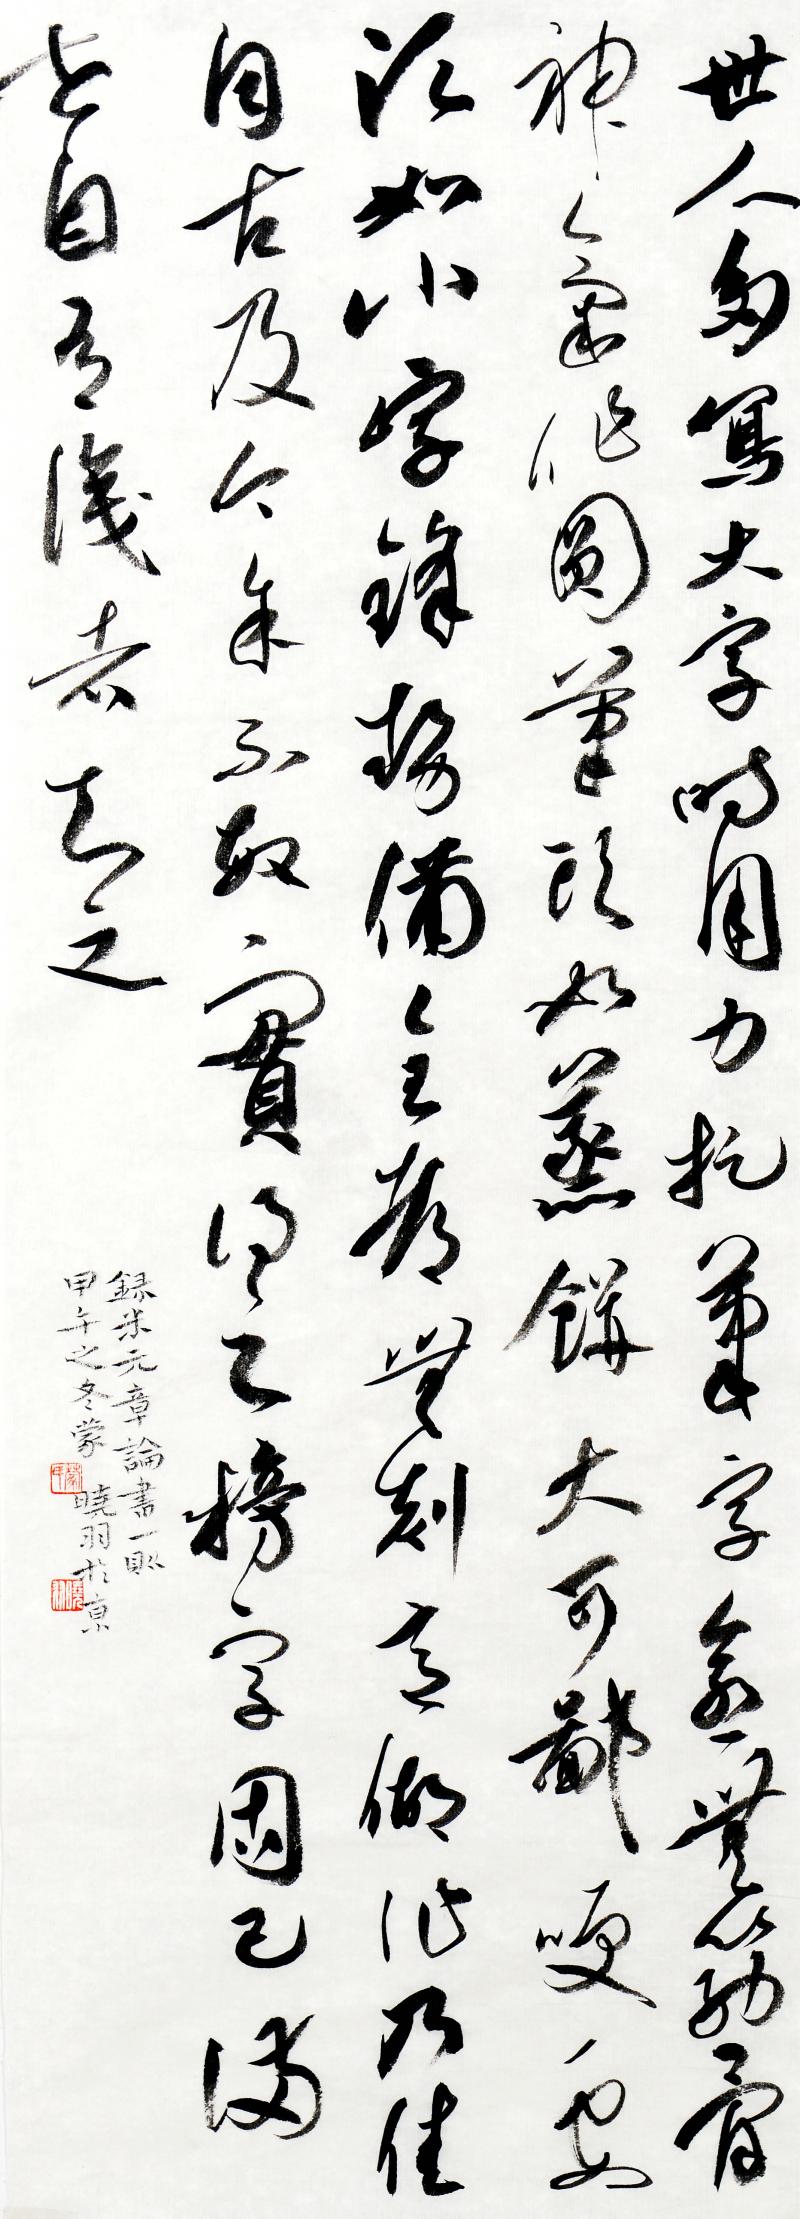 世人多寫大字時用力捉筆字愈無筋骨
神氣作圓筆頭如蒸餅大可鄙咲要
須如小字鋒勢備全都無刻意做作乃佳
自古及今余不敏實得之榜字固已滿
世自有識者知之
錄米元章論書一則
甲午之冬蒙曉羽於京